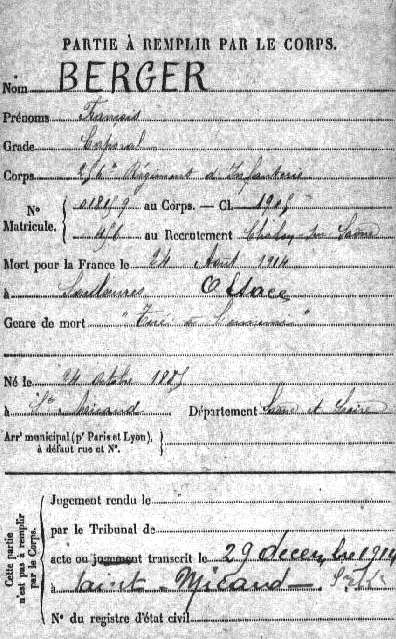 PARTIE À REMPLIR PAR LE CORPS.
Nom BERGER
Prénoms Francis
Grade Caporal
Corps Régiment d'Infanterie
N° Matricule. { au Corps. — Cl.
au Recrutement Chalon-sur Saône
Mort pour la France le 24 Août 1914
à Alsace
Genre de mort "Tué à l'ennemi"
Né le 24 octobre
à St Micaud Département Saône et Loire
Arrt municipal (pr Paris et Lyon), à défaut rue et N°. }
Cette partie n'est pas à remplir par le Corps. {
Jugement rendu le
par le Tribunal de
acte ou jugement transcrit le 29 décembre 1914
à Saint-Micaud
N° du registre d'état civil